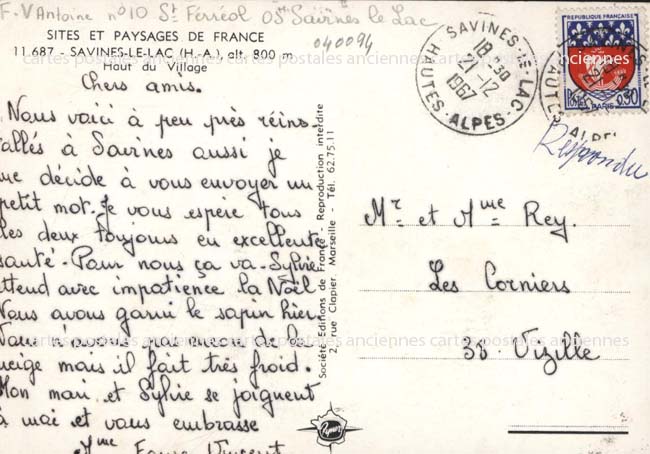 F-V Antoine n°10 St Ferréol 05 Savines le Lac
SITES ET PAYSAGES DE FRANCE
11.687 - SAVINES-LE-LAC (H.-A.), alt. 800 m
Haut du Village
040094
Chers amis.
Nous voici à peu près réins-
tallés à Savines aussi je
me décide à vous envoyer un
petit mot. Je vous espère tous
les deux toujours en excellente
santé. Pour nous ça va. Sylvie
attend avec impatience la Noël
Nous avons garni le sapin hier
Nous n'avons pas encore de la
neige mais il fait très froid.
Mon mari et Sylvie se joignent
à moi et vous embrasse
Mme Vincent
Société Editions de France - Reproduction interdite
2, rue Clapier Marseille - Tél. 62.75.11
SAVINES-LE-LAC
18-30
21-12
1967
HAUTES-ALPES
REPUBLIQUE FRANÇAISE
POSTES
PARIS
0,30
Répondu
Mr et Mme Rey.
Les Corniers
38. Vizille
cartes postales anciennes cartes postales anciennes cartes postales anciennes